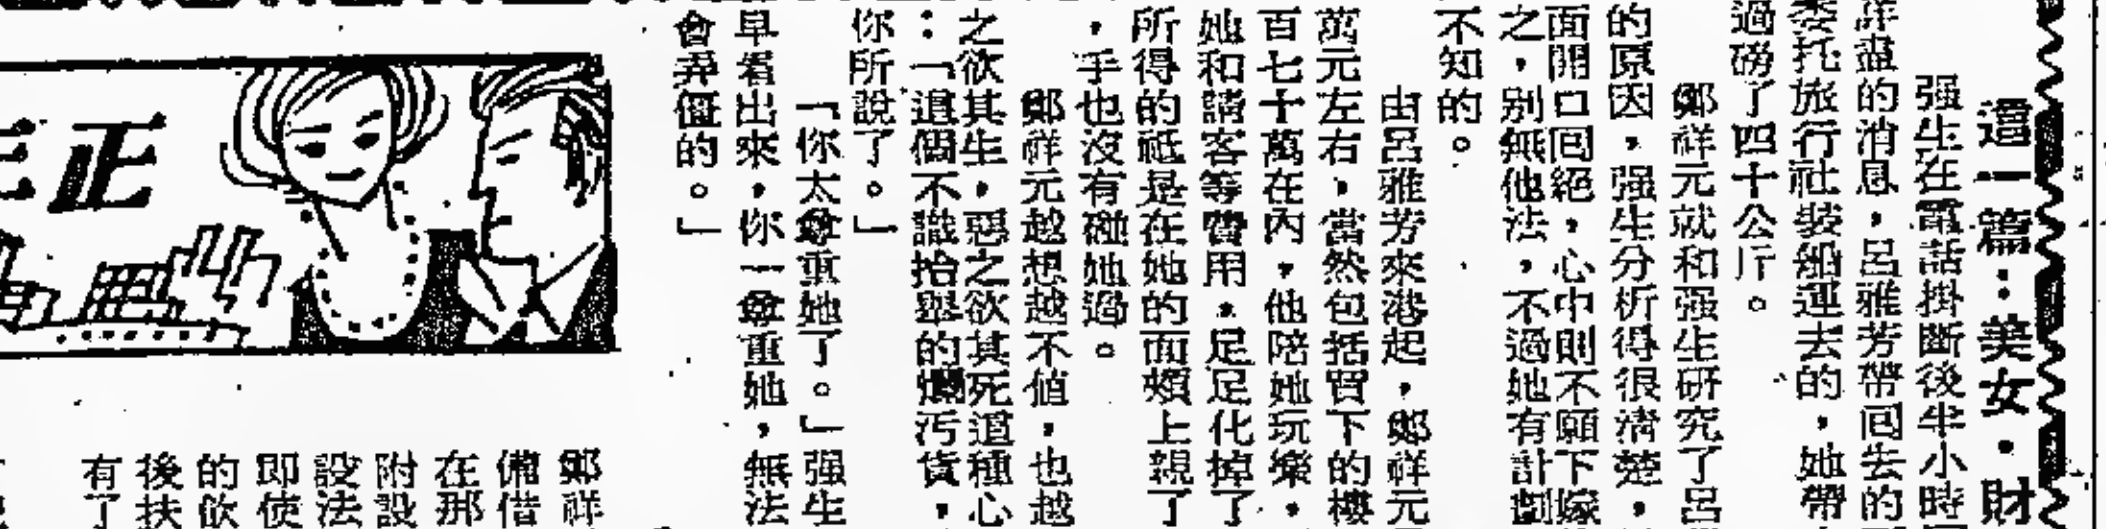 這一篇：美女·財
强生在電話掛斷後半小時
詳盡的消息，呂雅芳帶囘去的
委托旅行社裝船運去的，她帶
過磅了四十公斤。
鄭祥元就和强生研究了呂
的原因，强生分析得很清楚，
面開口囘絕，心中則不願下嫁
之，别無他法，不過她有計劃
不知的。
由呂雅芳來港起，鄭祥元
萬元左右，當然包括買下的樓
百七十萬在內，他陪她玩樂，
她和請客等費用，足足化掉了
所得的祗是在她的面頰上親了
，手也沒有碰她過。
鄭祥元越想越不值，也越
之欲其生，惡之欲其死這種心
：「這個不識抬舉的爛污貨，
你所說了。」
「你太尊重她了。」强生
早看出來，你一尊重她，無法
會弄僵的。」
正
鄭祥
備借
在那
附設
設法
卽使
的飲
後扶
有了